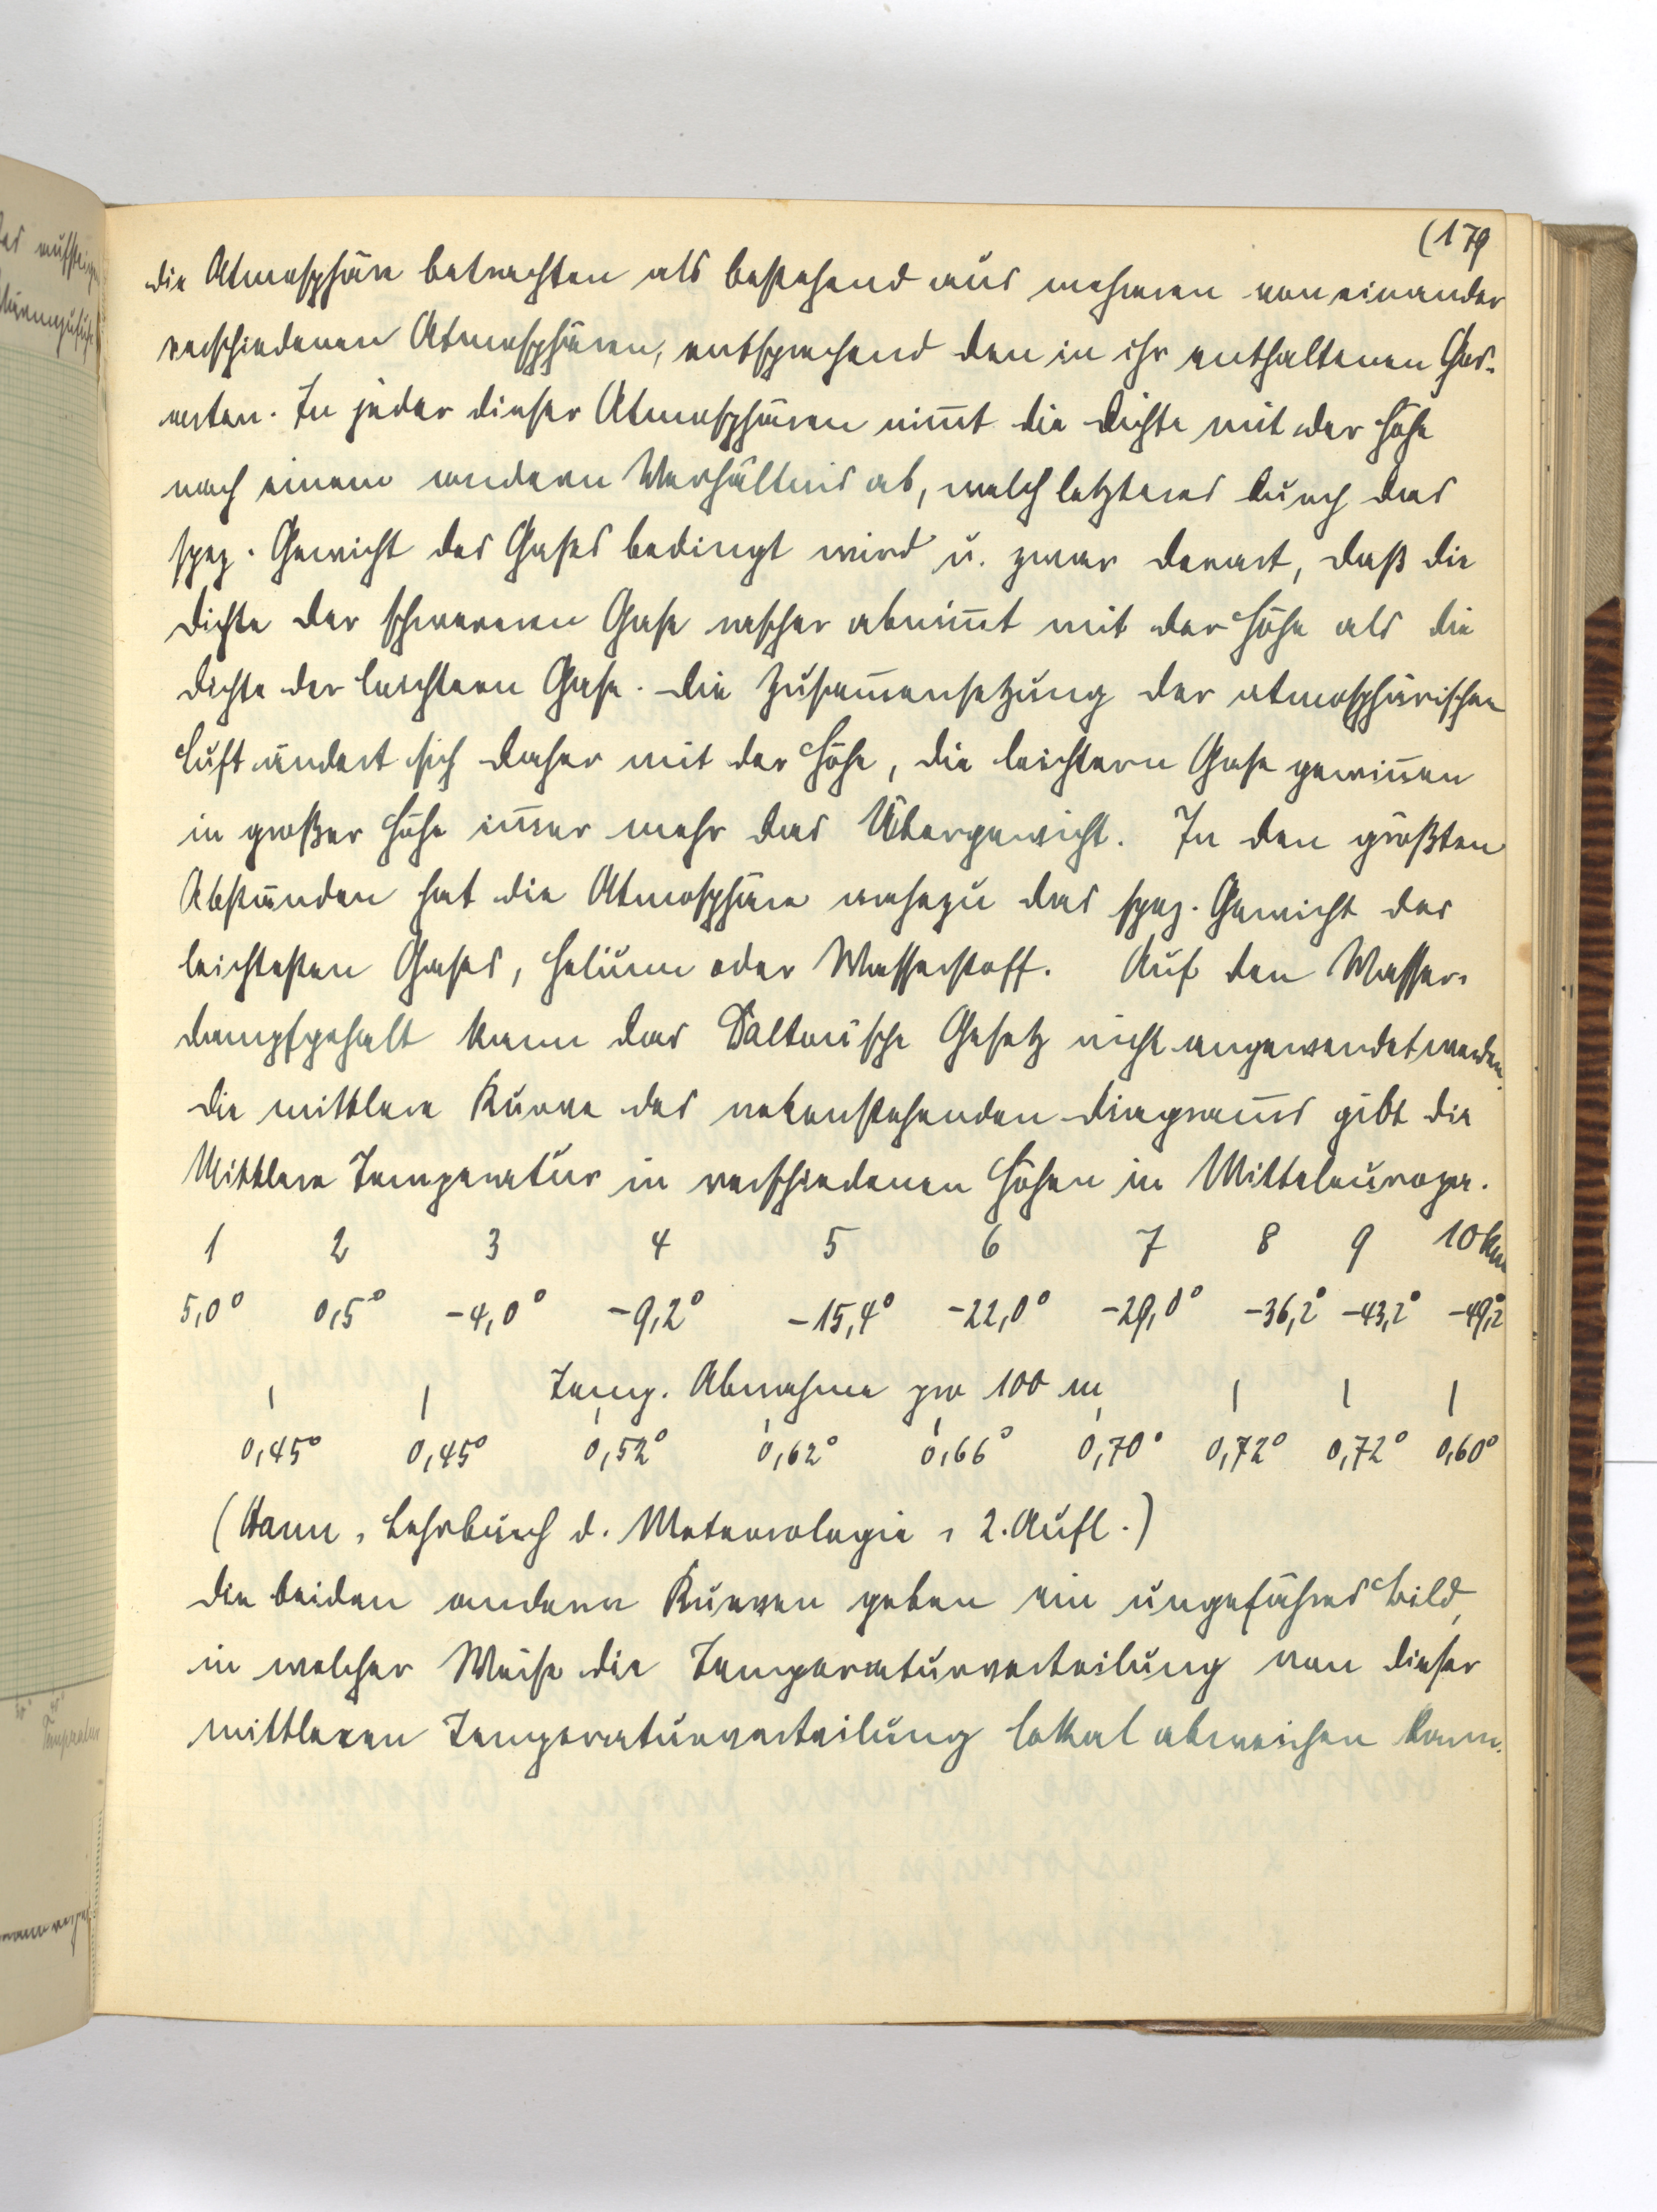 (179
die Atmosphäre betrachten als bestehend aus mehreren voneinander
verschiedenen Atmosphären, entsprechend den in ihr enthaltenen Gas-
arten. In jeder dieser Atmosphären nim̄t die Dichte mit der Höhe
nach einem andern Verhältnis ab, welch letzteres durch das
spez. Gewicht des Gases bedingt wird u. zwar derart, daß die
Dichte der schwereren Gase rascher abnim̄t mit der Höhe als die
Dichte der leichtern Gase. Die Zusam̄ensetzung der atmosphärischen
Luft ändert sich daher mit der Höhe, die leichtern Gase gewin̄en
in großer Höhe im̄er mehr das Übergewicht. In den größten
Abständen hat die Atmosphäre nahezu das spez. Gewicht des
leichtesten Gases, Helium oder Wasserstoff. Auf den Wasser-
dampfgehalt kann das Daltonische Gesetz nicht angewendet werden.
Die mittlere Kurve des nebenstehenden Diagram̄s gibt die
Mittlere Temperatur in verschiedenen Höhen in Mitteleuropa.
1 2 3 4 5 6 7 8 9 10 km
5,0° 0,5° -4,0° -9,2° -15,4° -22,0° -29,0° -36,2° -43,2° -49,2°
Temp. Abnahme pro 100 m
0,45° 0,45° 0,52° 0,62° 0,66° 0,70° 0,72° 0,72° 0,60°
(Hann, Lehrbuch d. Meteorologie, 2. Aufl.)
Die beiden andern Kurven geben ein ungefähres Bild,
in welcher Weise die Temperaturverteilung von dieser
mittleren Temperaturverteilung lokal abweichen kann.